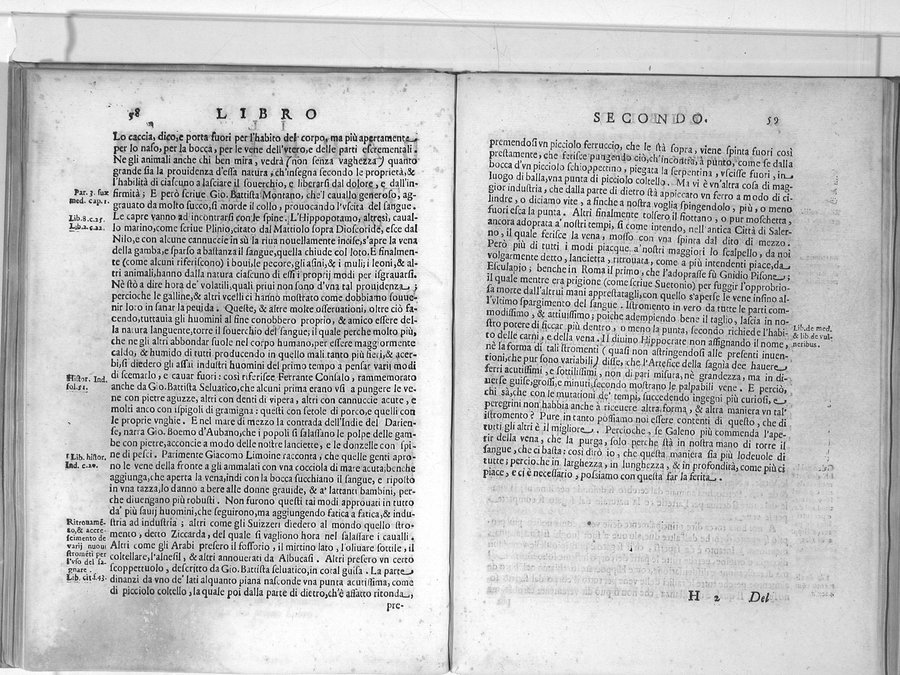 58 LIBRO
Lo caccia, dico, e porta fuori per l'habito del corpo, ma più apertamente
per lo naso, per la bocca, per le vene dell'vtero, e delle parti escrementali.
Ne gli animali anche chi ben mira, vedrà (non senza vaghezza) quanto
grande sia la prouidenza d'essa natura, ch'insegna secondo le proprietà, &
l'habilità di ciascuno a lasciare il souerchio, e liberarsi dal dolore, e dall'in-
firmità; E però scriue Gio. Battista Montano, che l'cauallo generoso, ag-
grauato da molto succo, si morde il collo, prouocando l'vscita del sangue.
Le capre vanno ad incontrarsi con le spine. L'Hippopotamo, altresì, caual-
lo marino, come scriue Plinio, citato dal Mattiolo sopra Dioscoride, esce dal
Nilo, e con alcune cannuccie in sù la riua nouellamente incise, s'apre la vena
della gamba, e sparso a bastanza il sangue, quella chiude col loto. E finalmen-
te (come alcuni riferiscono) i boui, le pecore, gli asini, & i muli, i leoni, & al-
tri animali, hanno dalla natura ciascuno di essi i proprij modi per isgrauarsi.
Nè stò a dire hora de' volatili, quali priui non sono d'vna tal prouidenza;
percioche le galline, & altri vcelli ci hanno mostrato come dobbiamo souue-
nir loro in sanar la pepida. Queste, & altre molte osseruationi, oltre ciò fa-
cendo, tuttauia gli huomini al fine conobbero proprio, & amico essere del-
la natura languente, torre il souerchio del sangue; il quale perche molto più,
che ne gli altri abbondar suole nel corpo humano, per essere maggiormente
caldo, & humido di tutti producendo in quello mali tanto più fieri, & acer-
bi, si diedero gli assai industri huomini del primo tempo a pensar varij modi
di scemarlo, e cauar fuori: così riferisce Ferrante Consalo, rammemorato
anche da Gio. Battista Seluatico, che alcuni prima erano vsi a pungere le ve-
ne con pietre aguzze, altri con denti di vipera, altri con cannuccie acute, e
molti anco con ispigoli di gramigna: questi con setole di porco, e quelli con
le proprie vnghie. E nel mare di mezzo la contrada dell'Indie del Darien-
se, narra Gio. Boemo d'Aubano, che i popoli si salassano le polpe delle gam-
be con pietre, acconcie a modo delle nostre lanciette, e le donzelle con spi-
ne di pesci. Parimente Giacomo Limoine racconta, che quelle genti apro-
no le vene della fronte a gli ammalati con vna cocciola di mare acuta: benche
aggiunga, che aperta la vena, indi con la bocca succhiano il sangue, e riposto
in vna tazza, lo danno a bere alle donne grauide, & a' lattanti bambini, per-
che diuengano più robusti. Non furono questi tai modi approuati in tutto
da' più sauij huomini, che seguirono, ma aggiungendo fatica a fatica, & indu-
stria ad industria; altri come gli Suizzeri diedero al mondo quello stro-
mento, detto Ziccarda, del quale si vagliono hora nel salassare i caualli.
Altri come gli Arabi presero il fossorio, il mirtino lato, l'oliuare sottile, il
coltellare, l'alnesil, & altri annouerati da Albucasi. Altri presero vn certo
scoppertuolo, descritto da Gio. Battista seluatico, in coral guisa. La parte
dinanzi da vno de' lati alquanto piana nasconde vna punta acutissima, come
di picciolo coltello, la quale poi dalla parte di dietro, ch'è affatto ritonda,
pre-
Par. 3. suæ
med. cap. 1.
Lib. 8. c. 25.
Lib. 2. c. 22.
Histor. Ind.
fol. 51.
Lib. histor.
Ind. c. 20.
Ritrouamē-
to, & accre-
scimento de
varij nuoui
stromēti per
l'vso del sa-
gnare.
Lib. cit. f. 43.
SECONDO. 59
premendosi vn picciolo ferruccio, che le stà sopra, viene spinta fuori così
prestamente, che ferisce pungendo ciò, ch'incontra, à punto, come se dalla
bocca d'vn picciolo schioppettino, piegata la serpentina, vscisse fuori, in
luogo di balla, vna punta di picciolo coltello. Ma vi è vn'altra cosa di mag-
gior industria, che dalla parte di dietro stà appiccato vn ferro a modo di ci-
lindro, o diciamo vite, a finche a nostra voglia spingendolo, più, o meno
fuori esca la punta. Altri finalmente tolsero il fiottano, o pur moschetta,
ancora adoprata a' nostri tempi, si come intendo, nell'antica Città di Saler-
no, il quale ferisce la vena, mosso con vna spinta dal dito di mezzo.
Però più di tutti i modi piacque a' nostri maggiori lo scalpello, da noi
volgarmente detto, lancietta, ritrouata, come a più intendenti piace, da
Esculapio; benche in Roma il primo, che l'adoprasse fù Gnidio Pisone;
il quale mentre era prigione (come scriue Suetonio) per fuggir l'opprobrio-
sa morte dall'altrui mani apprestatagli, con quello s'aperse le vene insino al-
l'vltimo spargimento del sangue. Istromento in vero da tutte le parti com-
modissimo, & attiuissimo; poiche adempiendo bene il taglio, lascia in no-
stro potere di ficcar più dentro, o meno la punta, secondo richiede l'habi-
to delle carni, e della vena. Il diuino Hippocrate non assignando il nome,
nè la forma di tali stromenti (quasi non astringendosi alle presenti inuen-
tioni, che pur sono variabili) disse, che l'Artefice della sagnia dee hauere
ferri acutissimi, e sottilissimi, non di pari misura, nè grandezza, ma in di-
uerse guise, grossi, e minuti, secondo mostrano le palpabili vene. E perciò,
chi sà, che con le mutationi de' tempi, succedendo ingegni più curiosi, e
peregrini non habbia anche a riceuere altra forma, & altra maniera vn tal'
istromento? Pure in tanto possiamo noi essere contenti di questo, che di
tutti gli altri è il migliore. Percioche, se Galeno più commenda l'ape-
rir della vena, che la purga, solo perche stà in nostra mano di torre il
sangue, che ci basta: così dirò io, che questa maniera sia più lodeuole di
tutte; percioche in larghezza, in lunghezza, & in profondità, come più ci
piace, e ci è necessario, possiamo con questa far la ferita.
Lib. de med.
& lib. de vul-
neribus.
H 2 Del